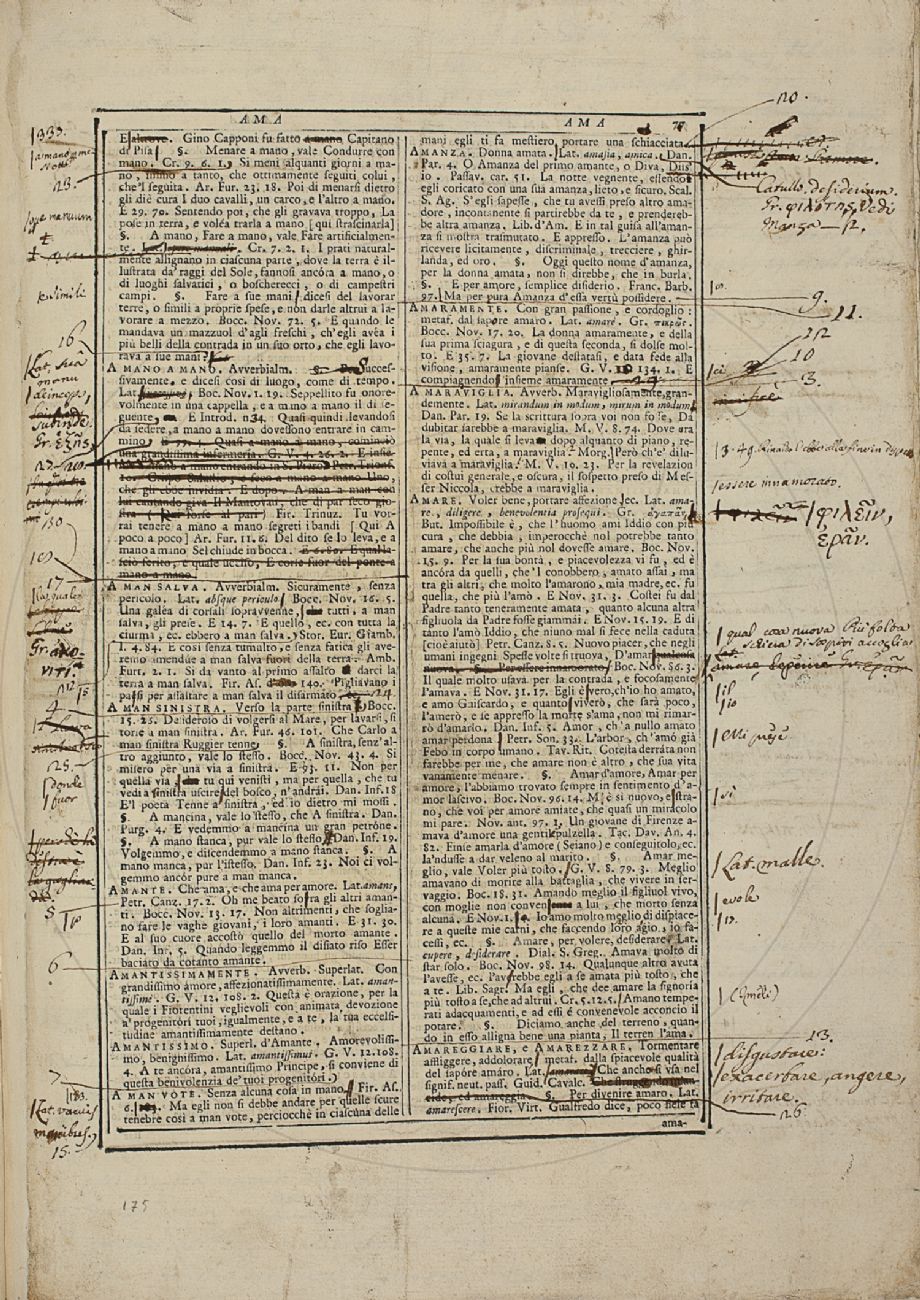 AMA
E altrove. Gino Capponi fu fatto a mano Capitano
di Pisa §. Menare a mano, vale Condurre con
mano. Cr. 9. 6. 1. Si meni alquanti giorni a ma-
no, infino a tanto, che ottimamente seguiti colui,
che'l seguita. Ar. Fur. 23. 18. Poi di menarsi dietro
gli diè cura I duo cavalli, un carco, e l'altro a mano.
E 29. 70. Sentendo poi, che gli gravava troppo, La
pose in terra, e voléa trarla a mano [qui strascinarla]
§. A mano, Fare a mano, vale Fare artificialmen-
te. Cr. 7. 2. 1. I prati natural-
mente allignano in ciascuna parte, dove la terra è il-
lustrata da' raggi del Sole, fannosi ancóra a mano, o
di luoghi salvatici, o boscherecci, o di campestri
campi. §. Fare a sue mani dicesi del lavorar
terre, o simili a proprie spese, e non darle altrui a la-
vorare a mezzo. Bocc. Nov. 72. 5. E quando le
mandava un mazzuol d'agli freschi, ch'egli avéa i
più belli della contrada in un suo orto, che egli lavo-
rava a sue mani
A MANO A MANO. Avverbialm. Succes-
sivamente, e dicesi così di luogo, come di tempo.
Lat. Bocc. Nov. 1. 19. Seppellito fu onore-
volmente in una cappella, e a mano a mano il dì se-
guente, E Introd. n34. Quasi quindi levandosi
da sedere, a mano a mano dovessono entrare in cam-
mino, E 77. 4. Quasi a mano a mano, cominciò
una grandissima infermeria. G. V. 4. 26. 2. E infie-
me a mano a mano entrando in S. Piero. Petr. Trionf.
che gli ebbe invidia. E dopo. A man a man con
lui cantando giva Il Mantovan, che di par seco gio-
stra (Qui forse al pari) Fir. Trinuz. Tu vor-
rai tenere a mano a mano segreti i bandi [Qui A
poco a poco] Ar. Fur. 11. 6. Del dito se lo leva, e a
mano a mano Sel chiude in bocca. E 6. 80.
A MAN SALVA. Avverbialm. Sicuramente, senza
pericolo. Lat. absque periculo. Bocc. Nov. 16. 5.
Una galéa di corsali sopravvenne, tutti, a man
salva, gli prese. E 14. 7. E quello, ec. con tutta la
ciurma, ec. ebbero a man salva. Stor. Eur. Giamb.
I. 4. 84. E così senza tumulto, e senza fatica gli ave-
remo amendue a man salva fuori della terra. Amb.
Furt. 2. 1. Si da vanto al primo assalto darci la
terra a man salva. Fir. As. 140. Pigliavano i
passi per assaltare a man salva il disarmato
A MAN SINISTRA. Verso la parte sinistra. Bocc.
15. 26. Desideroso di volgersi al Mare, per lavarsi, si
torse a man sinistra. Ar. Fur. 46. 101. Che Carlo a
man sinistra Ruggier tenne §. A sinistra, senz'al-
tro aggiunto, vale lo stesso. Bocc. Nov. 43. 4. Si
misero per una via a sinistra. E 93. 11. Non per
quella via, tu qui venisti, ma per quella, che tu
vedi a sinistra uscire del bosco, n'andrai. Dan. Inf. 18
E'l poeta Tenne a sinistra, ed io dietro mi mossi.
§. A mancina, vale lo stesso, che A sinistra. Dan.
Purg. 4. E vedemmo a mancina un gran petrone.
§. A mano stanca, pur vale lo stesso. Dan. Inf. 19.
Volgemmo, e discendemmo a mano stanca. §. A
mano manca, pur l'istesso. Dan. Inf. 23. Noi ci vol-
gemmo ancór pure a man manca.
AMANTE. Che ama, e che ama per amore. Lat. amans,
Petr. Canz. 17. 2. Oh me beato sofra gli altri aman-
ti. Bocc. Nov. 13. 17. Non altrimenti, che soglia-
no fare le vaghe giovani, i loro amanti. E 31. 30.
E al suo cuore accostò quello del morto amante.
Dan. Inf. 5. Quando leggemmo il disiato riso Esser
baciato da cotanto amante.
AMANTISSIMAMENTE. Avverb. Superlat. Con
grandissimo amore, affezionatissimamente. Lat. aman-
tissimè. G. V. 12. 108. 2. Questa è orazione, per la
quale i Fiorentini veglievoli con animata devozione
a' progenitori tuoi, igualmente, e a te, la tua eccelsi-
tudine amantissimamente destano.
AMANTISSIMO. Superl. d'Amante. Amorevolissi-
mo, benignissimo. Lat. amantissimus. G. V. 12. 108.
4. A te ancóra, amantissimo Principe, si conviene di
questa benivolenzia de' tuoi progenitori.)
A MAN VOTE. Senza alcuna cosa in mano. Fir. As.
6. Ma egli non si debbe andare per quelle scure
tenebre così a man vote, perciocchè in ciascuna delle
AMA
mani egli ti fa mestiero, portare una schiacciata
AMANZA. Donna amata. Lat. amasia, amica. Dan.
Par. 4. O Amanza del primo amante, o Diva, Diss'
io. Passav. car. 51. La notte vegnente, essendo
egli coricato con una sua amanza, lieto, e sicuro. Scal.
S. Ag. S'egli sapesse, che tu avessi preso altro ama-
dore, incontanente si partirebbe da te, e prenderéb-
be altra amanza. Lib. d'Am. E in tal guisa all'aman-
za si mostra trasmutato. E appresso. L'amanza può
ricevere licitamente, discriminale, trecciere, ghir-
landa, ed oro. §. Oggi questo nome d'amanza,
per la donna amata, non si direbbe, che in burla.
§. E per amore, semplice disiderio. Franc. Barb.
97. Ma per pura Amanza d'essa vertù possidere.
AMARAMENTE. Con gran passione, e cordoglio:
metaf. dal sapore amaro. Lat. amarè. Gr. πικρῶς.
Bocc. Nov. 17. 20. La donna amaramente, e della
sua prima sciagura, e di questa seconda, si dolse mol-
to. E 35. 7. La giovane destatasi, e data fede alla
visione, amaramente pianse. G. V. 134. 1. E
compiagnendo insieme amaramente
A MARAVIGLIA. Avverb. Maravigliosamente, gran-
demente. Lat. mirandum in modum, mirum in modum.
Dan. Par. 19. Se la scrittura sovra voi non fosse, Da
dubitar sarebbe a maraviglia. M. V. 8. 74. Dove era
la via, la quale si leva dopo alquanto di piano, re-
pente, ed erta, a maraviglia. Morg. Però ch'e' dilu-
viava a maraviglia. M. V. 10. 23. Per la revelazion
di costui generale, e oscura, il sospetto preso di Mes-
ser Niccola, crebbe a maraviglia.
AMARE. Voler bene, portare affezione ec. Lat. ama-
re, diligere, benevolentia prosequi. Gr. ἀγαπᾶν,
But. Impossibile è, che l'huomo ami Iddio con più
cura, che debbia, imperocchè nol potrebbe tanto
amare, che anche più nol dovesse amare. Boc. Nov.
15. 9. Per la sua bontà, e piacevolezza vi fu, ed è
ancóra da quelli, che'l conobbero, amato assai, ma
tra gli altri, che molto l'amarono, mia madre, ec. fu
quella, che più l'amò. E Nov. 31. 3. Costei fu dal
Padre tanto teneramente amata, quanto alcuna altra
figliuola da Padre fosse giammai. E Nov. 15. 19. E di
tanto l'amò Iddio, che niuno mal si fece nella caduta
[cioè aiutò] Petr. Canz. 8. 5. Nuovo piacer, che negli
umani ingegni Spesse volte si truova, D'amar
Per essere innamorato. Boc. Nov. 86. 3.
Il quale molto usava per la contrada, e focosamente
l'amava. E Nov. 31. 17. Egli è vero, ch'io ho amato,
e amo Guiscardo, e quanto viverò, che sarà poco,
l'amerò, e se appresso la morte s'ama, non mi rimar-
rò d'amarlo. Dan. Inf. 5. Amor, ch'a nullo amato
amar perdona. Petr. Son. 33. L'arbor, ch'amò già
Febo in corpo umano. Tav. Rit. Cotesta derráta non
farebbe per me, che amare non è altro, che sua vita
vanamente menare. §. Amar d'amore, Amar per
amore, l'abbiamo trovato sempre in sentimento d'a-
mor lascivo. Boc. Nov. 96. 14. M'è sì nuovo, e stra-
no, che voi per amore amiate, che quasi un miracolo
mi pare. Nov. ant. 97. 1. Un giovane di Firenze a-
mava d'amore una gentil pulzella. Tac. Dav. An. 4.
82. Finse amarla d'amore (Seiano) e conseguitolo, ec.
la'ndusse a dar veleno al marito. §. Amar me-
glio, vale Voler più tosto. G. V. 8. 79. 3. Meglio
amavano di morire alla battaglia, che vivere in ser-
vaggio. Boc. 18. 31. Amando meglio il figliuol vivo,
con moglie non conven a lui, che morto senza
alcuna. E Nov. 1. Io amo molto meglio di dispiace-
re a queste mie carni, che faccendo loro agio, io fa-
cessi, ec. §. Amare, per volere, desiderare. Lat.
cupere, desiderare. Dial. S. Greg. Amava molto di
star solo. Boc. Nov. 98. 14. Qualunque altro avuta
l'avesse, ec. l'averebbe egli a se amata più tosto, che
a te. Lib. Sagr. Ma egli, che dee amare la signoria
più tosto a se, che ad altrui. Cr. 5. 12. 5. Amano tempe-
rati adacquamenti, e ad essi è convenevole acconcio il
potare. §. Diciamo anche del terreno, quan-
do in esso alligna bene una pianta, Il terren l'ama.
AMAREGGIARE, e AMAREZZARE. Tormentare
affliggere, addolorare: metaf. dalla spiacevole qualità
del sapore amáro. Lat. Che anche si usa nel
signif. neut. pass. Guid. Cavalc.
§. Per divenire amaro. Lat.
amarescere. Fior. Virt. Gualfredo dice, poco fiele fa
ama-
1333.
23.
sope manuum
e simili
16
Lat. sua
manu
deinceps,
subinde
Gr. ἑξῆς
130
109
17
4
25.
donde
fuor
5
6
7
Lat. vacuis
manibus,
15.
20.
Catullo. desiderium.
Gr. φιλότης, Vedi
Manza
9.
11.
12
10
3.
essere innamorato.
φιλεῖν,
ἐρᾶν.
qual cosa nuova
il
io
sì
Lat. malle.
evole
13.
disgustare:
exacerbare, angere,
irritare.
26
175